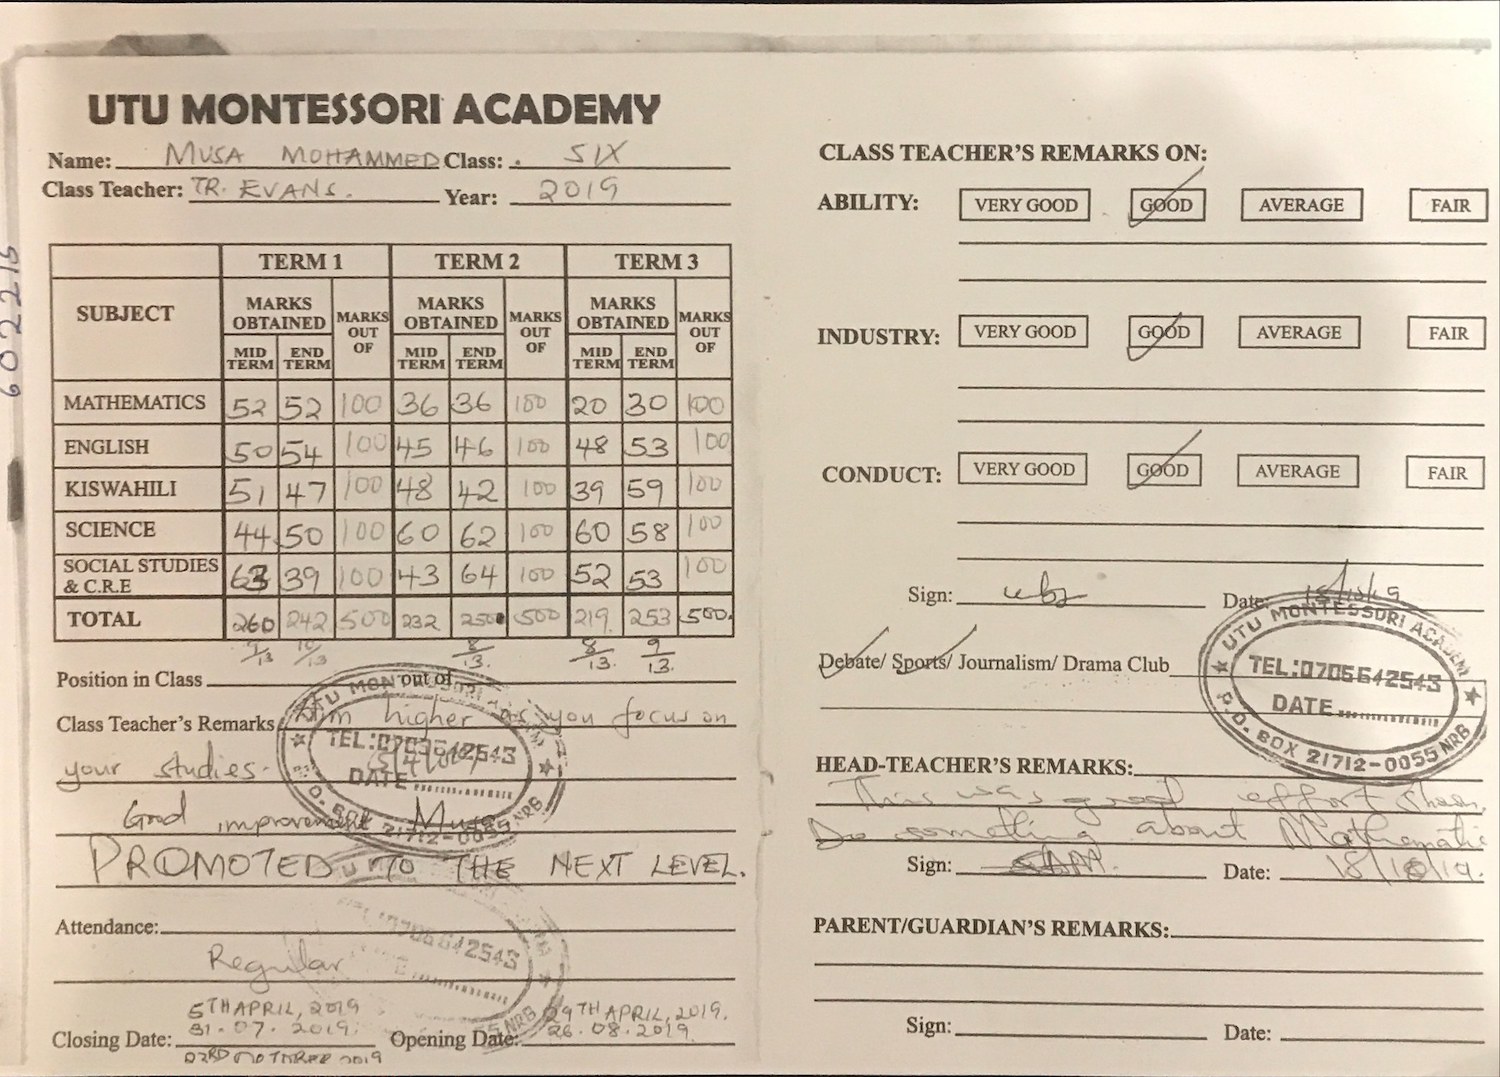 UTU MONTESSORI ACADEMY
Name: MUSA MOHAMMED Class: SIX
Class Teacher: TR. EVANS. Year: 2019
602215
TERM 1 TERM 2 TERM 3
SUBJECT MARKS OBTAINED MARKS OUT OF MARKS OBTAINED MARKS OUT OF MARKS OBTAINED MARKS OUT OF
MID TERM END TERM MID TERM END TERM MID TERM END TERM
MATHEMATICS 52 52 100 36 36 100 20 30 100
ENGLISH 50 54 100 45 46 100 48 53 100
KISWAHILI 51 47 100 48 42 100 39 59 100
SCIENCE 44 50 100 60 62 100 60 58 100
SOCIAL STUDIES & C.R.E 63 39 100 43 64 100 52 53 100
TOTAL 260 242 500 232 250 500 219 253 500.
8/13. 8/13. 9/13.
Position in Class out of
Class Teacher's Remarks Aim higher as you focus on
your studies.
Good improvement Musa
PROMOTED TO THE NEXT LEVEL.
Attendance:
Regular
5TH APRIL, 2019 29TH APRIL, 2019.
31.07.2019. 26.08.2019.
Closing Date: Opening Date:
2019
UTU MONTESSORI ACADEMY
TEL:0705642543
DATE
P.O. BOX 21712-0055 NRB
0705642543
CLASS TEACHER'S REMARKS ON:
ABILITY: VERY GOOD GOOD AVERAGE FAIR
INDUSTRY: VERY GOOD GOOD AVERAGE FAIR
CONDUCT: VERY GOOD GOOD AVERAGE FAIR
Sign: Date: 18/10/19
Debate/ Sports/ Journalism/ Drama Club
UTU MONTESSORI ACADEMY
TEL:0705642543
DATE
P.O. BOX 21712-0055 NRB
HEAD-TEACHER'S REMARKS:
This was good effort shown.
Do something about Mathematic
Sign: Date: 18/10/19.
PARENT/GUARDIAN'S REMARKS:
Sign: Date: